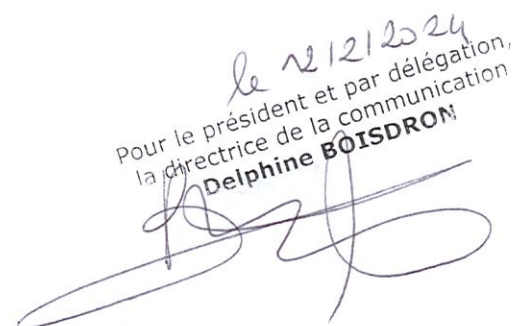 le 12/2/2024
Pour le président et par délégation,
la directrice de la communication
Delphine BOISDRON